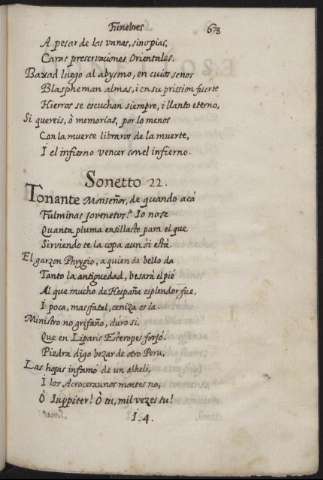 Fúnebres 673
A pesar de las vrnas, sino pias,
Caras preseruaciones Orientales.
Baxad luego al abysmo, en cuios senos
Blaspheman almas, i en su prission fuerte
Hierros se escuchan siempre, i llanto eterno,
Si quereis, ô memorias, por lo menos
Con la muerte libraros de la muerte,
I el infierno vencer con el infierno.
Sonetto 22.
Tonante Monseñor, de quando acà
Fulminas jouenetos? Io no se
Quanta pluma ensillaste para el que
Siruiendo te la copa aun oi està.
El garzon Phrygio, a quien de bello da
Tanto la antiguedad, besarà el piè
Al que mucho de España esplendor fue,
I poca, mas fatal, ceniza es la.
Ministro no grifaño, duro si,
Que en Liparis Esteropes forjò
Piedra digo bezar de otro Peru,
Las hojas infamò de un alheli,
I los Acroceraunos montes no,
Ô Iuppiter! Ô tu, mil vezes tu!
I 4.